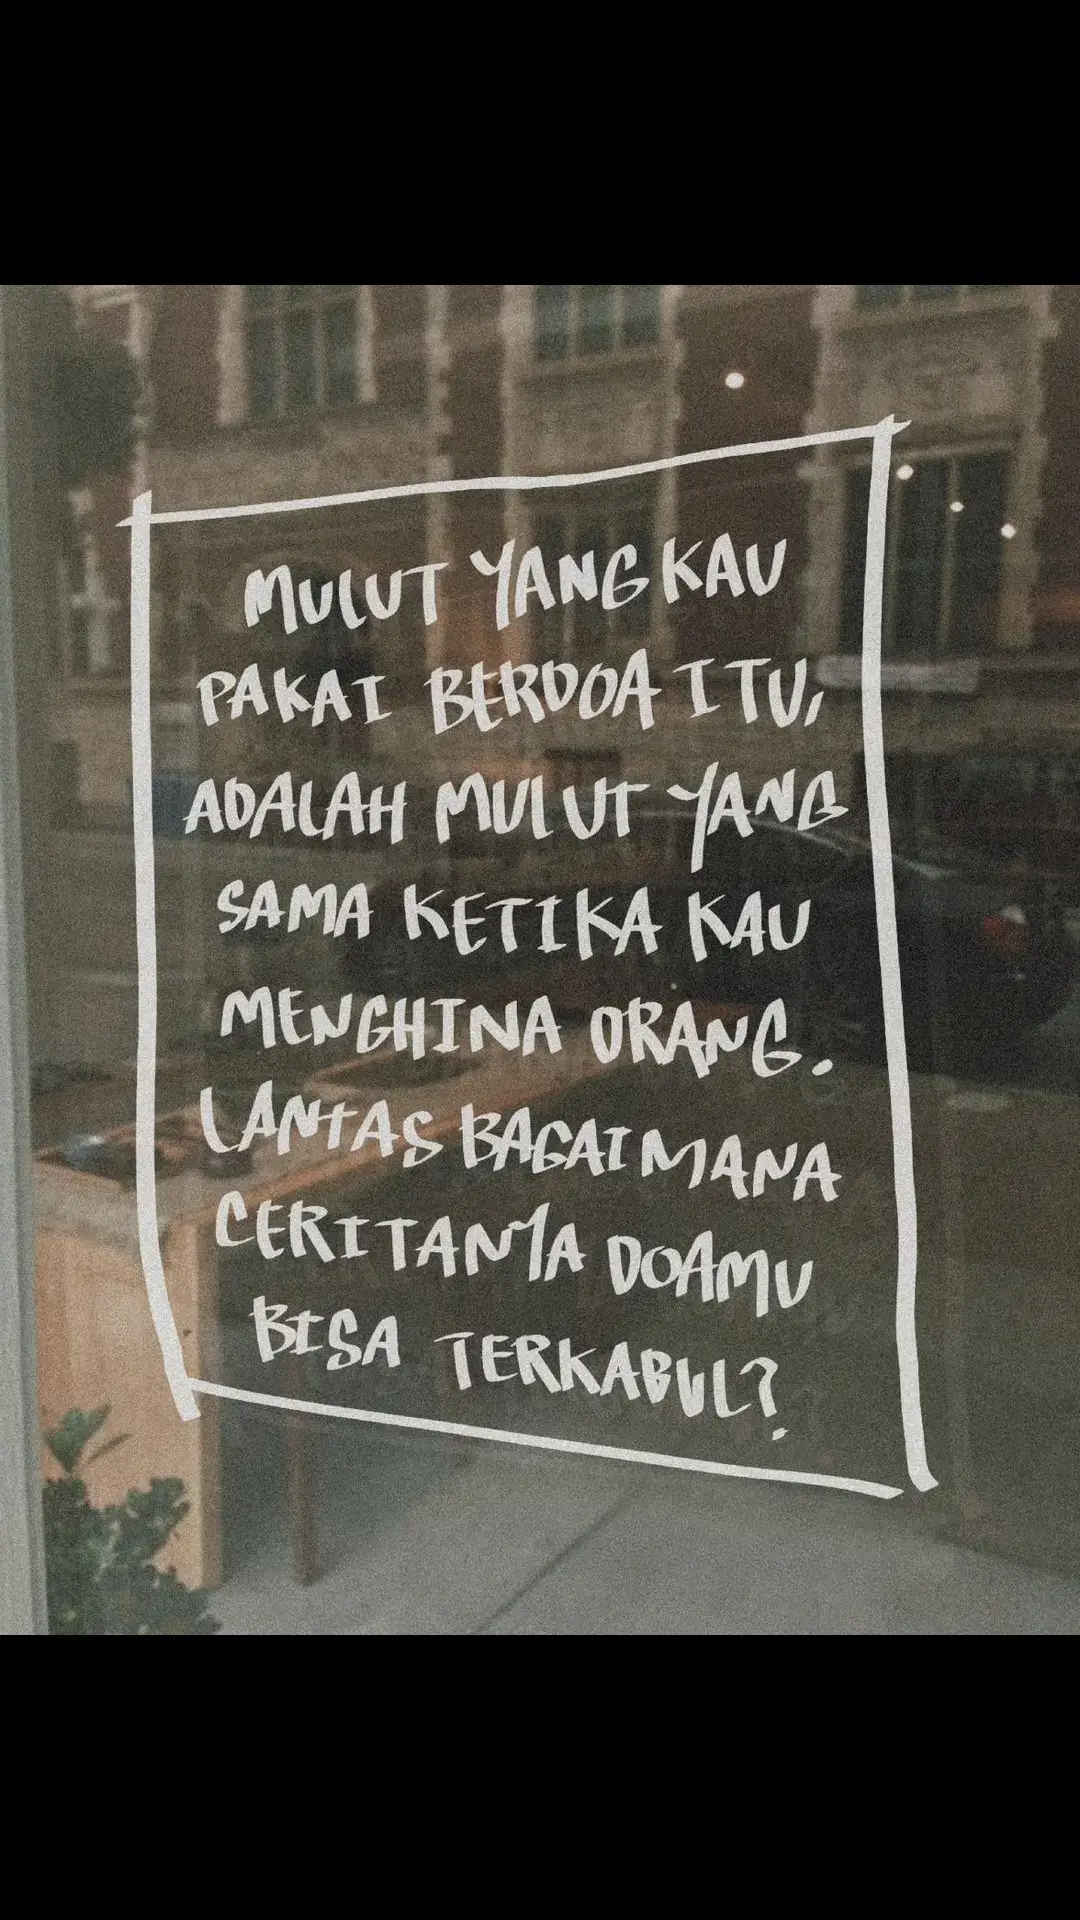 MULUT YANG KAU
PAKAI BERDOA ITU,
ADALAH MULUT YANG
SAMA KETIKA KAU
MENGHINA ORANG.
LANTAS BAGAIMANA
CERITANYA DOAMU
BISA TERKABUL?